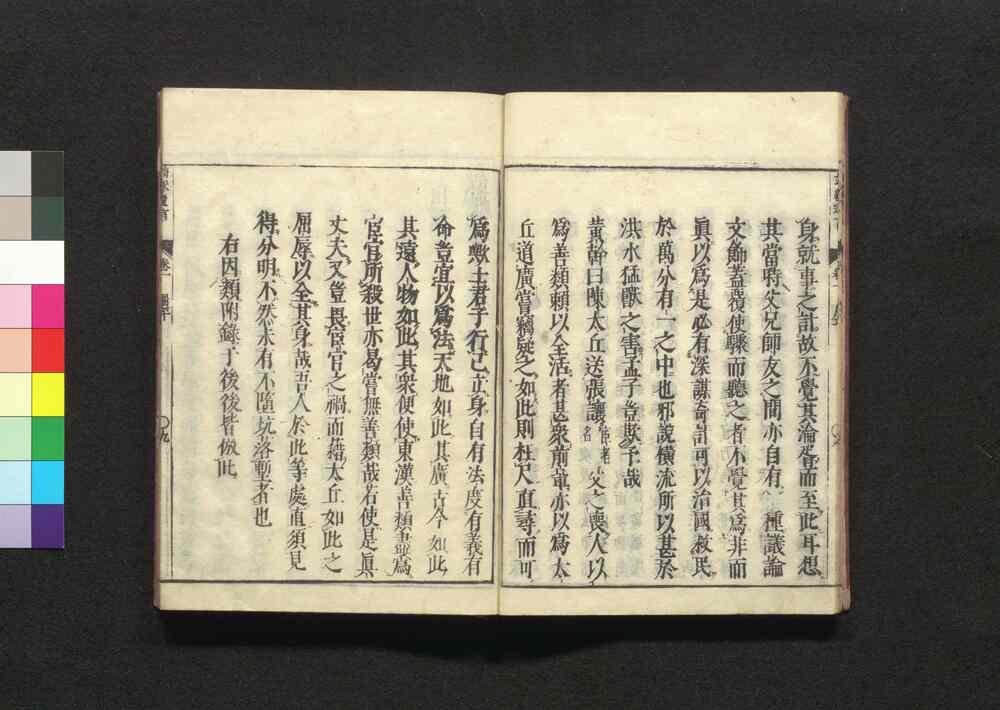 身就事之計故不覺其淪胥而至此耳想
其當時父兄師友之間亦自有一種議論
文飾蓋覆使驟而聽之者不覺其爲非而
眞以爲是必有深謀奇計可以治國救民
於萬分有一之中也邪說橫流所以甚於
洪水猛獸之害孟子豈欺予哉
黄幹曰陳太丘送張讓宦者名父之喪人以
爲善類賴以全活者甚衆前輩亦以爲太
丘道廣嘗竊疑之如此則枉尺直尋而可
爲歟士君子行己立身自有法度有義有
命豈宜以爲法天地如此其廣古今如此
其遠人物如此其衆便使東漢善類盡爲
宦官所殺世亦曷嘗無善類哉若使是眞
丈夫又豈畏宦官之禍而藉太丘如此之
屈辱以全其身哉吾人於此等處直須見
得分明不然未有不墮坑落塹者也
右因類附錄于後後皆倣此
卷一
九